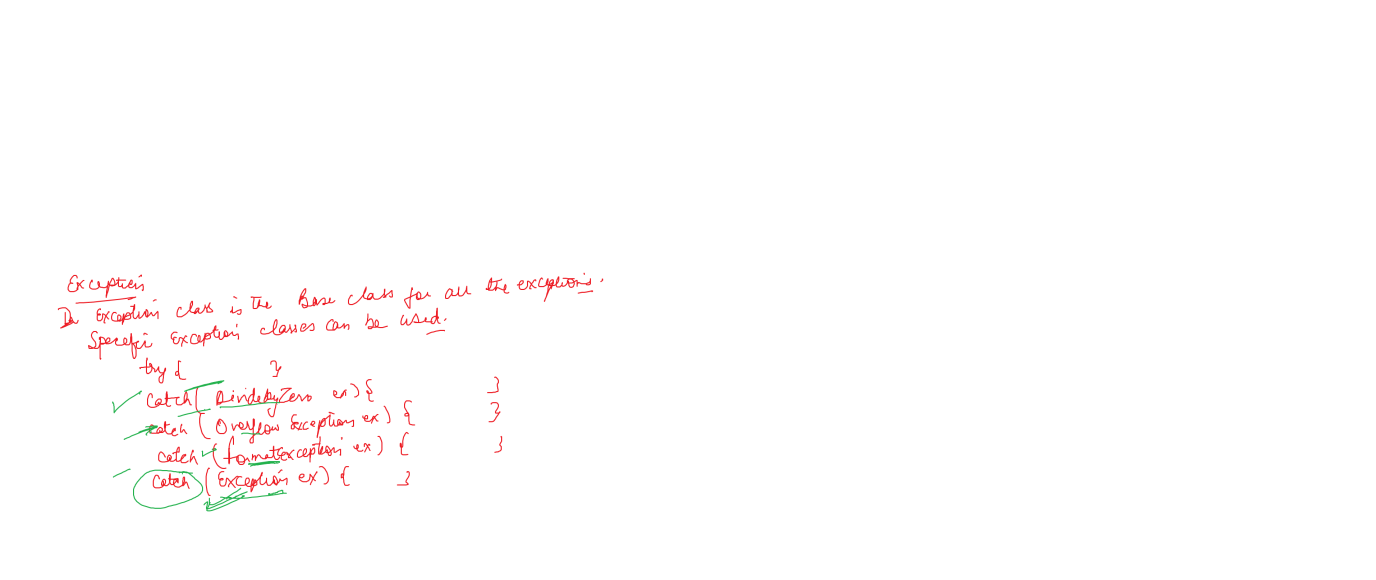 Exception
In Exception class is the Base class for all the exceptions.
Specific Exception classes can be used.
try { }
catch( DividebyZero ex) { }
catch (Overflow Exceptions ex) { }
catch (formatException ex) { }
catch (Exception ex) { }